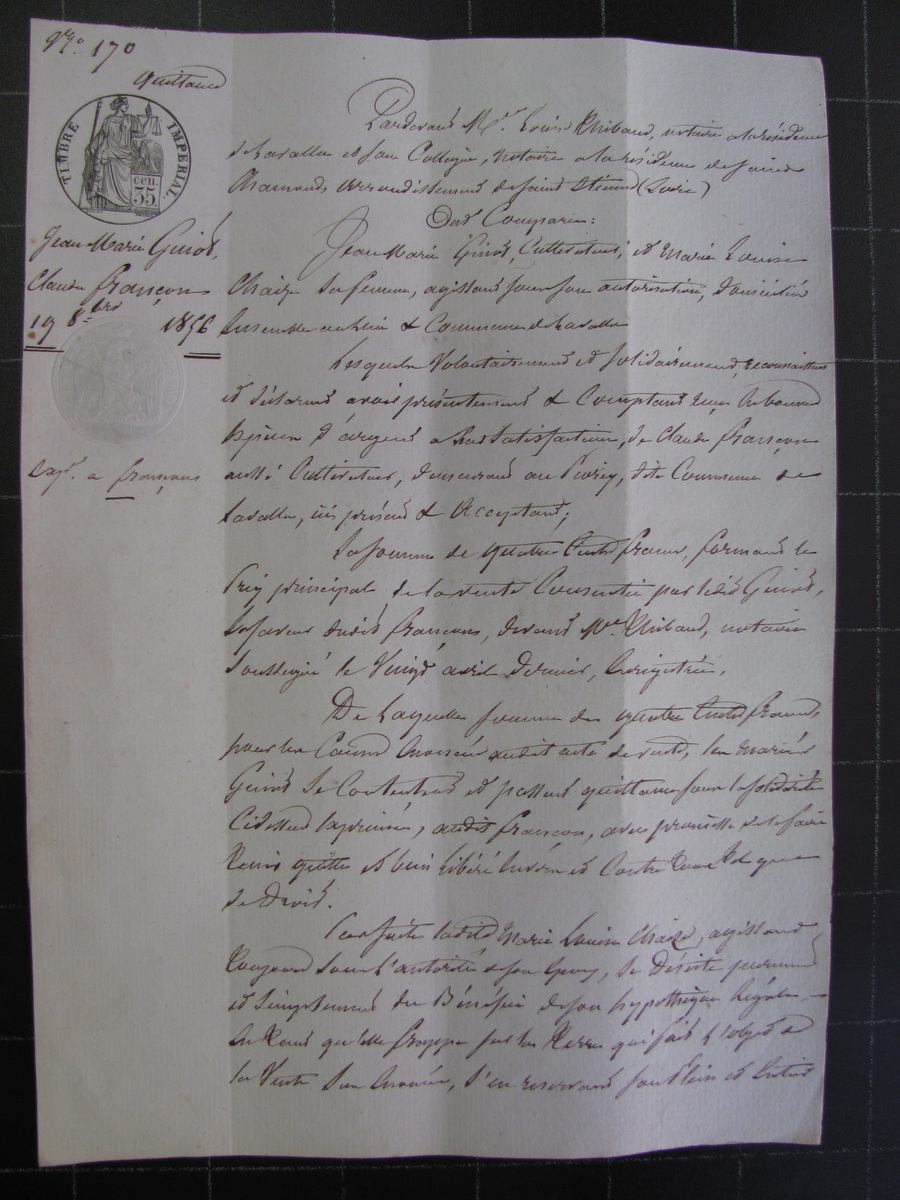 N° 170
Quittance
TIMBRE IMPERIAL
cen. 35
Jean Marie Guiot,
Claude françon
19 8bre 1856
Exp. a françon
Pardevant Me Louis Thibaud, notaire a la résidence
de Lavalla et son Collègue, notaire a la résidence de saint
Chamond, arrondissement de saint Etienne (Loire)
Ont Comparu:
Jean Marie Guiot, Cultivateur, et Marie Louise
Chaize sa femme, agissant sous son autorisation, domiciliés
Ensemble au lieu & Commune de Lavalla
Lesquels Volontairement et solidairement, reconnaissent
et déclarent avoir présentement & Comptant reçu En bonnes
Espèces d'argent a leur satisfaction, de Claude françon
aussi Cultivateur, demeurant au dite Commune de
Lavalla, ici présent & acceptant;
La somme de quatre Cents francs, formant le
Prix principal de la vente Consentie par ledit Guiot,
En faveur dudit françon, devant Me Thibaud, notaire
Soussigné le Vingt avril dernier, Enregistrée.
De Laquelle somme de quatre Cents francs,
pour les Causes Enoncées audit acte de vente, les mariés
Guiot se Contentent et passent quittance sous la solidarité
Cidessus Exprimée, audit françon, avec promesse de le faire
Tenir quitte et bien libéré Envers et Contre tous Tel que
de Droit.
Par suite ladite Marie Louise Chaize, agissant
Toujours sous l'autorité de son Epoux, se Désiste purement
et simplement du Bénéfice de son hypothèque légale,
En tant qu'elle frappe sur la Terre qui fait l'objet de
la Vente Sus Enoncée, s'en reservant son plein et Entier